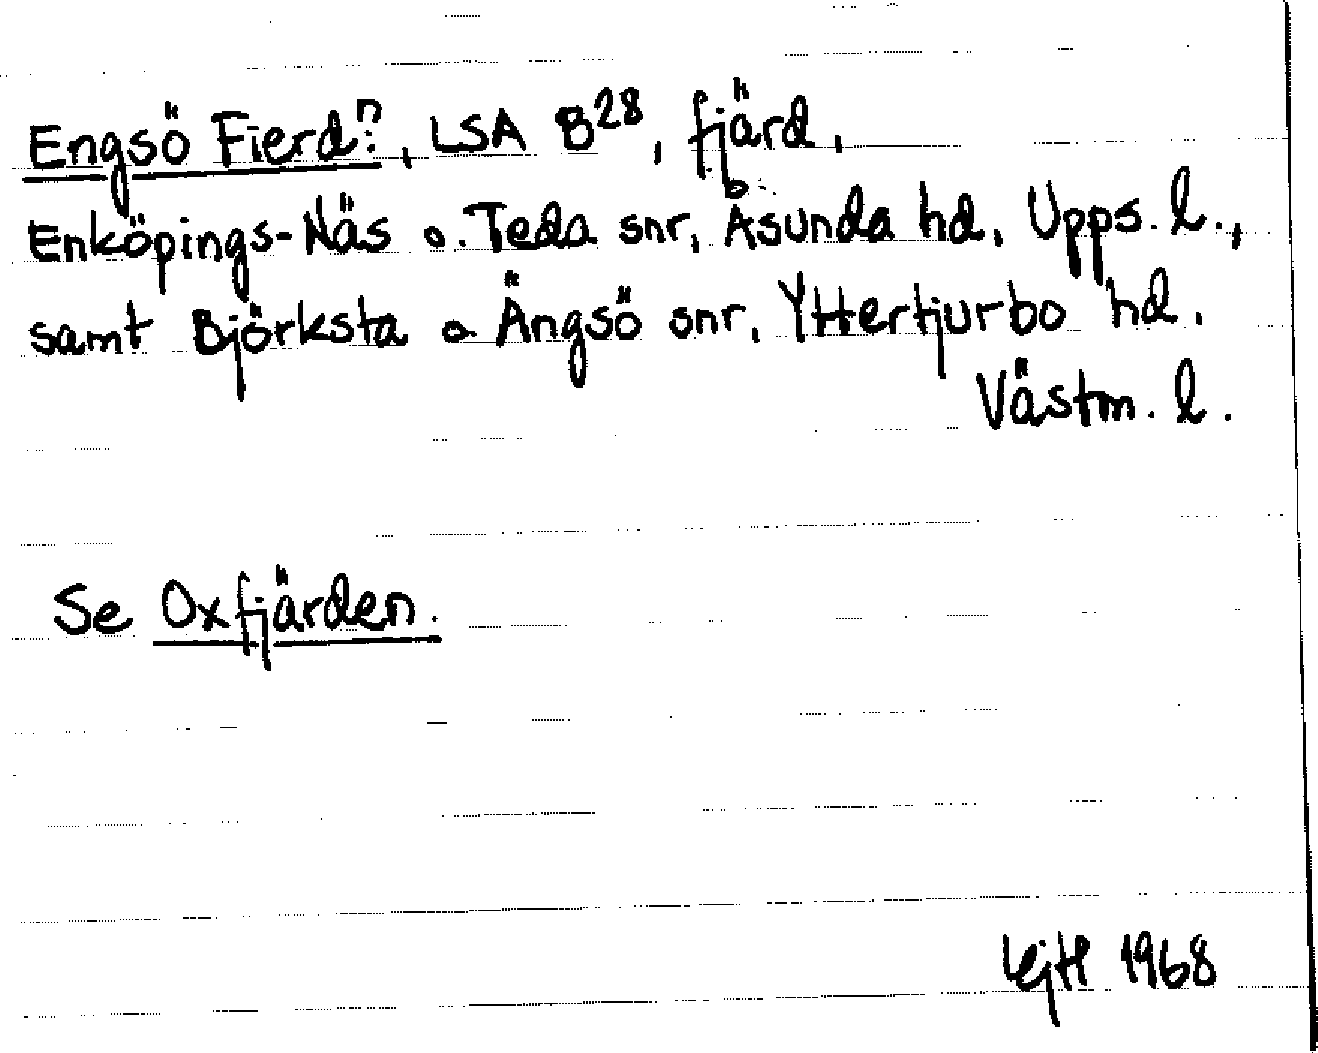 Engsö Fierd:n, LSA B28, fjärd,
Enköpings-Näs o. Teda snr, Åsunda hd, Upps. l.,
samt Björksta o Ängsö snr, Yttertjurbo hd.
Västm. l.
Se Oxfjärden.
1968